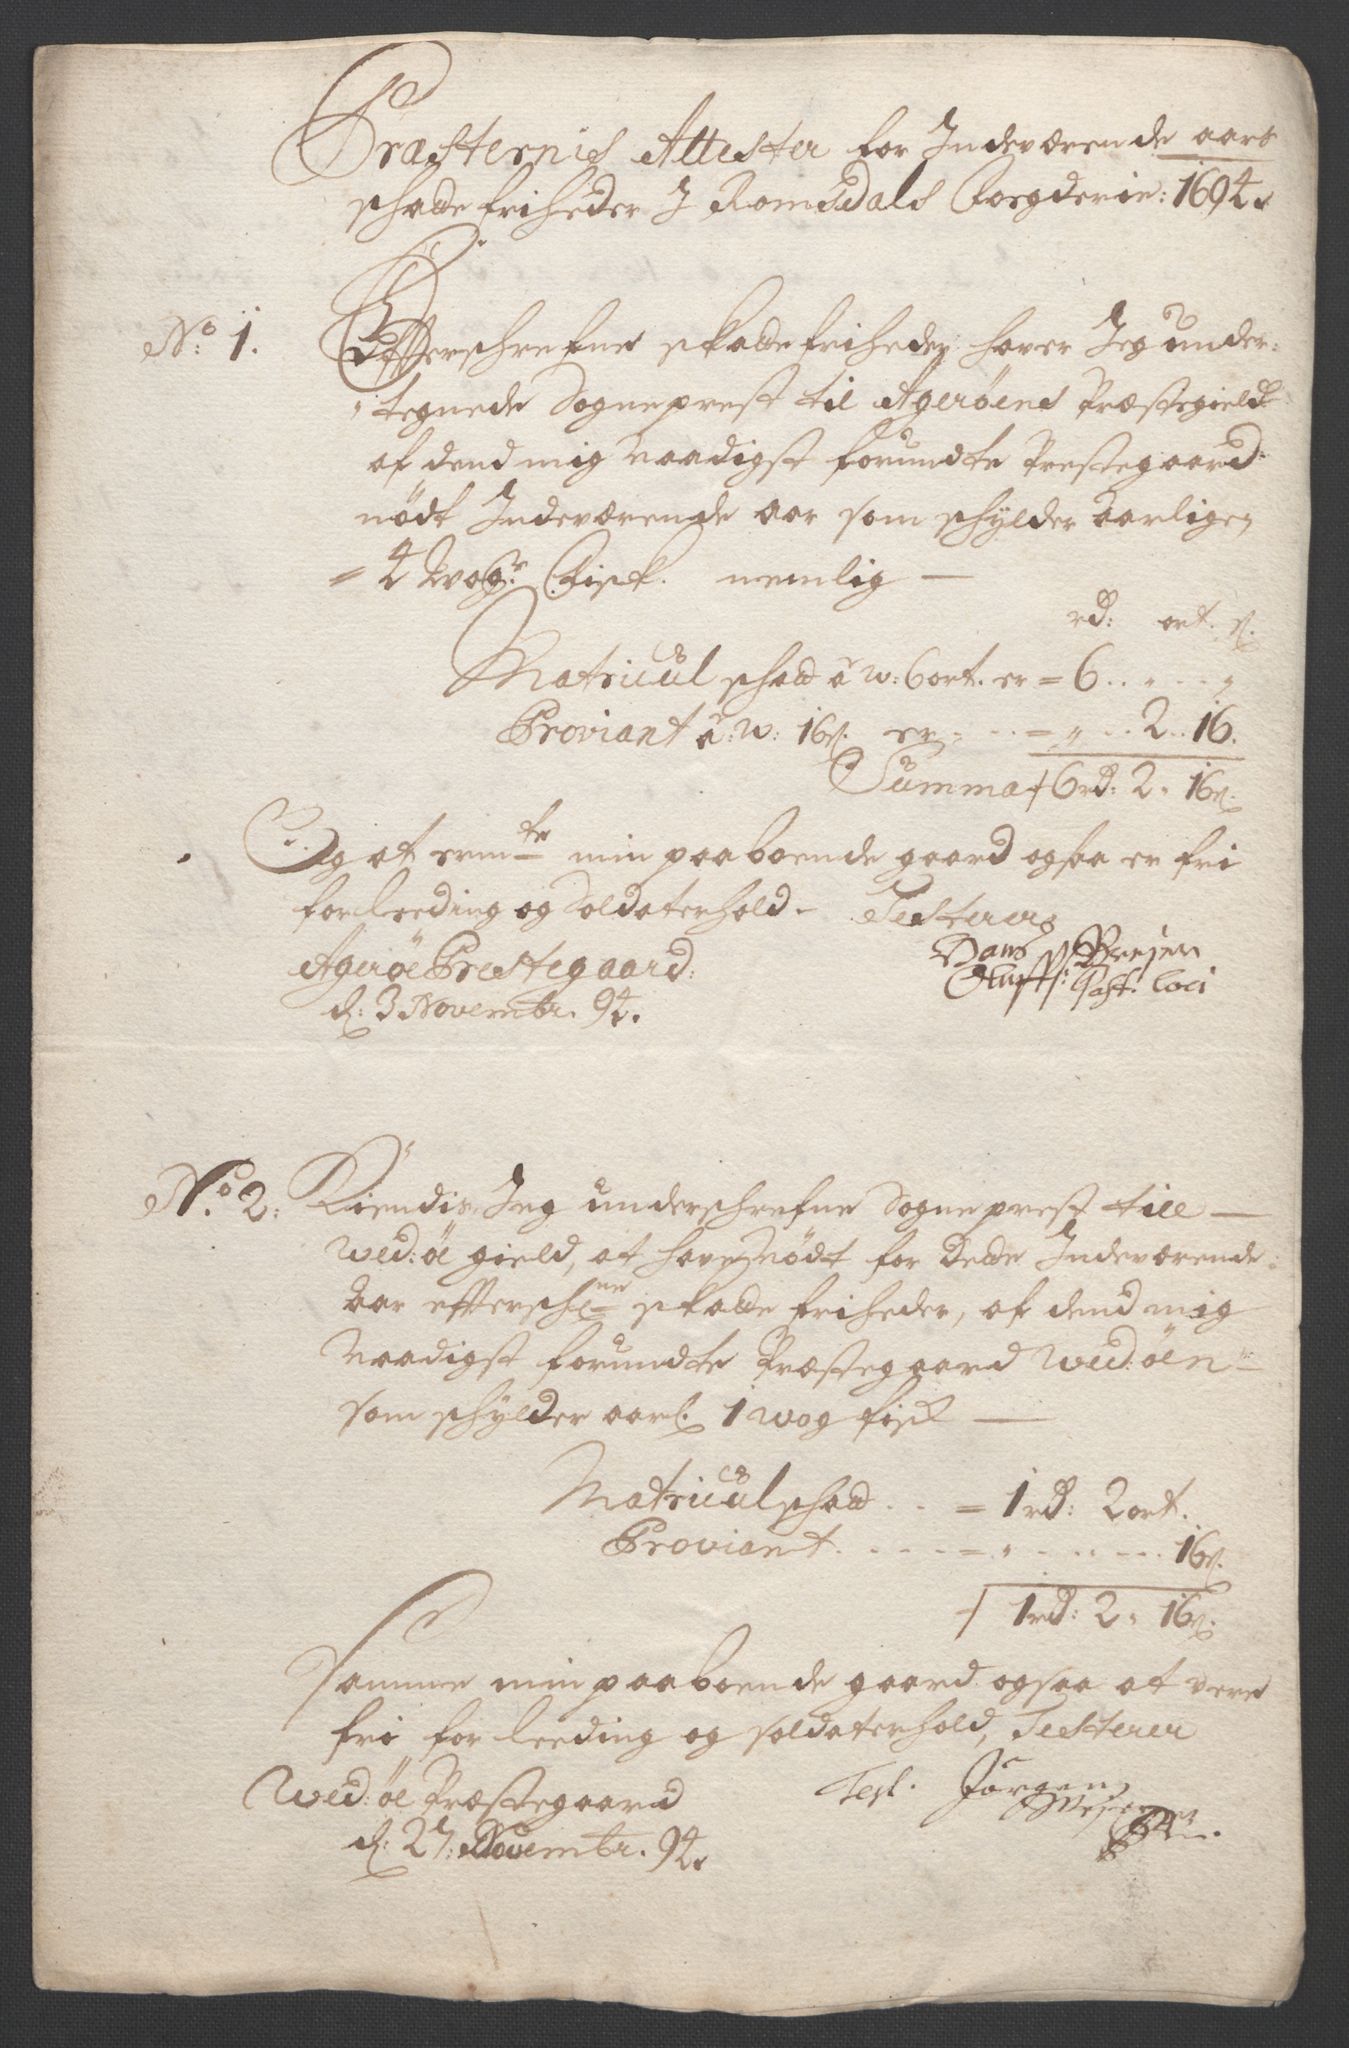 Præsternis Attester for Indeværende aars
schatte friheder I Romsdals Foegderie: 1694.
No: 1. Effterschrefne schatte friheder hafver Jeg under-
tegnede Sogneprest til Agerøens Præstegield
af dend mig naadigst forundte Prestegaard
nødt Indeværende aar som schylder Aarligen
4 Wog:r Fisk. nemlig —
rd: ort. s.
Matricul schatt a w: 6 ort. er = 6 . . „ . . „
Proviant a: w: 16 s. er . . . = „ . . 2 . . 16.
Summa 6 rd: 2 „ 16 s.
Og at ermte min paaboende gaard ogsaa er fri
for leeding og Soldaterhold. Testerer
Agerøe Prestegaard: Hans
d: 3 Novembr. 94. Past. Loci
No. 2: Kiendis Jeg underschrefne Sogneprest till —
Wed:øe gield, at hafve Nødt for dette Indeværende
Aar effterschrne skatte friheder, af dend mig
Naadigst forundte Præstegaard Wed:øen —
som schylder aarl. 1 wog fisk —
Matricul schatt . . = 1 rd: 2 ort.
Proviant . . . . = „ . . . . . 16 s.
1 rd: 2 „ 16 s.
Samme min paaboende gaard ogsaa at vere
fri for leeding og soldaterhold, Testerer
Wed:øe Præstegaard Test. Jørgen
d: 27: Novembr. 94.